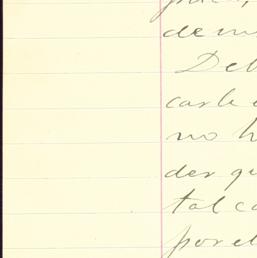 de m
Deb
carle
no h
der qu
tal co
por el